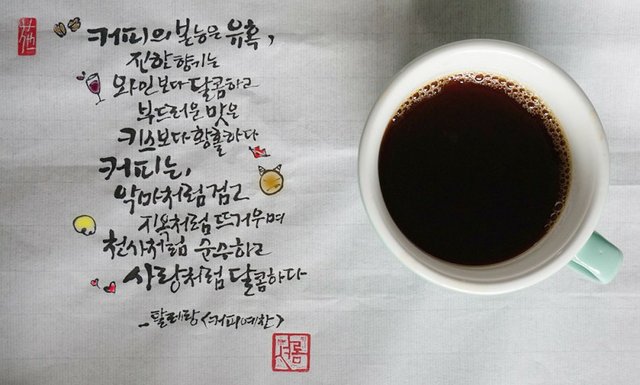 커피의 본능은 유혹,
진한 향기는
와인보다 달콤하고
부드러운 맛은
키스보다 황홀하다
커피는,
악마처럼 검고
지옥처럼 뜨거우며
천사처럼 순수하고
사랑처럼 달콤하다
_탈레랑<커피예찬>